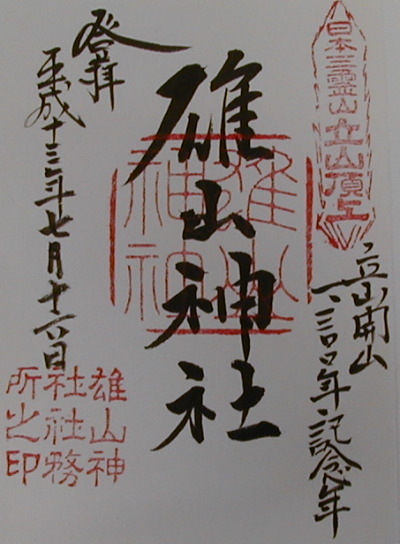 日本三霊山立山頂上
立山開山
一三〇〇年記念年
雄山神社
雄山神社
登拝
平成十三年七月十六日
雄山神
社社務
所之印